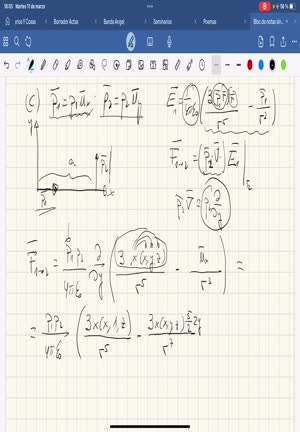 18:05 Martes 11 de marzo
Borrador Actas
Banda Angel
Seminarios
Poemas
Bloc de notas sin...
(C) P̄₁=p₁ūₓ. P̄₂=p₂ūy
Ē₁=1/4πε₀ (3(p̄₁r̄)r̄/r⁵ - p̄₁/r³)
y
a
p̄₂
x
F̄₁→₂=(p̄₂∇̄)Ē₁|₂
p̄₂∇̄=p₂ ∂/∂y
F̄₁→₂ = p₁p₂/4πε₀ ∂/∂y (3x(x,y,z)/r⁵ - ūₓ/r³) =
= p₁p₂/4πε₀ (3x(x,1,z)/r⁵ - 3x(x,y,z) 5/2 2y/r⁷